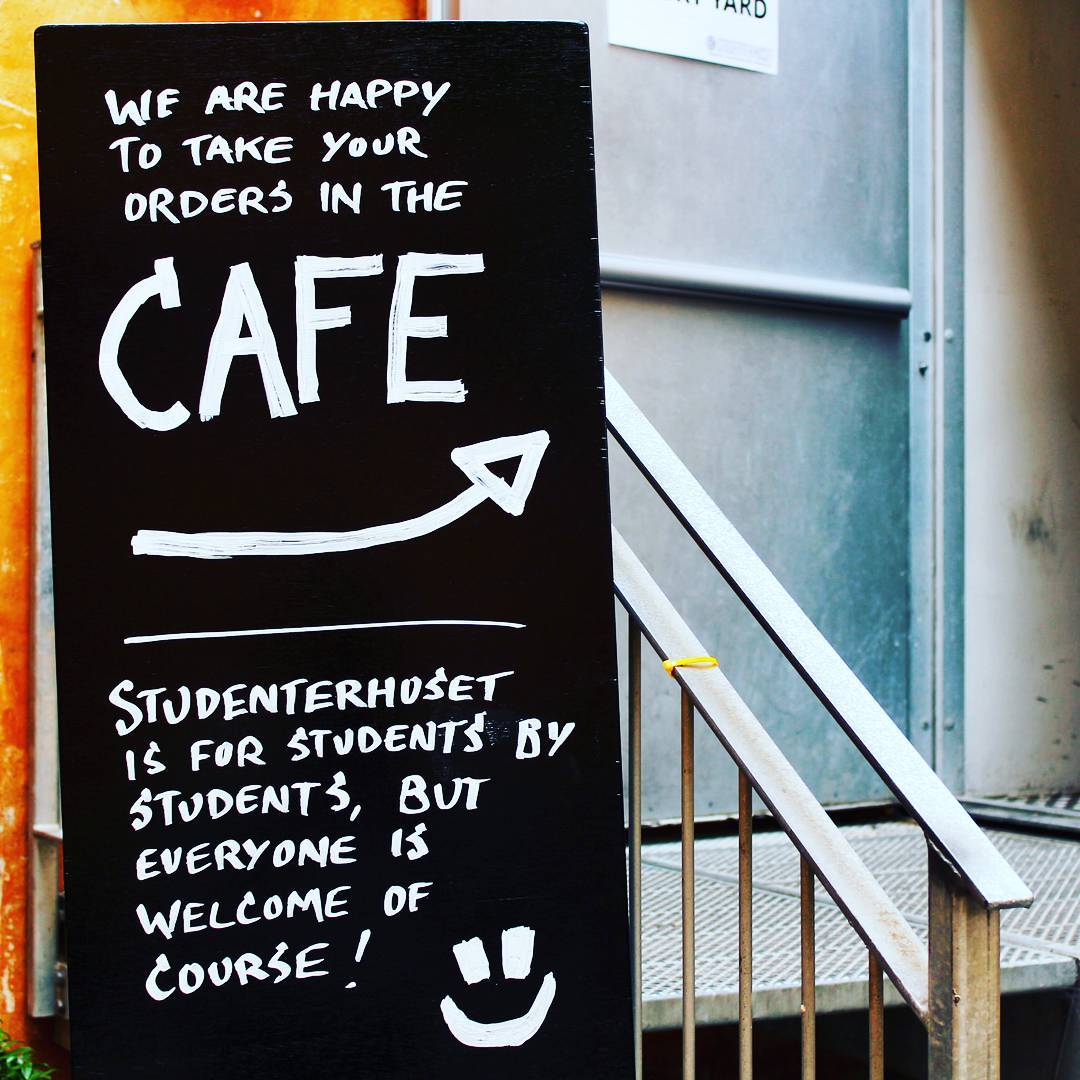 YARD
WE ARE HAPPY
TO TAKE YOUR
ORDERS IN THE
CAFE
STUDENTERHUSET
IS FOR STUDENTS BY
STUDENTS, BUT
EVERYONE IS
WELCOME OF
COURSE!